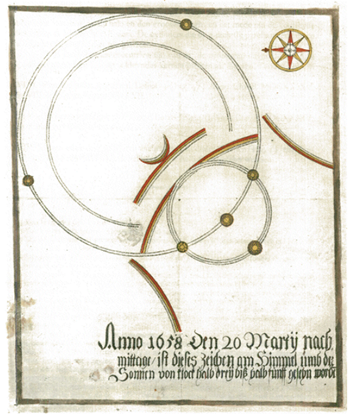 Anno 1658 Den 20 Martÿ nach
mittage ist dieses zeichen am Himmel umb der
Sonnen von klock halb dreÿ biß halb fünff gesehen worden